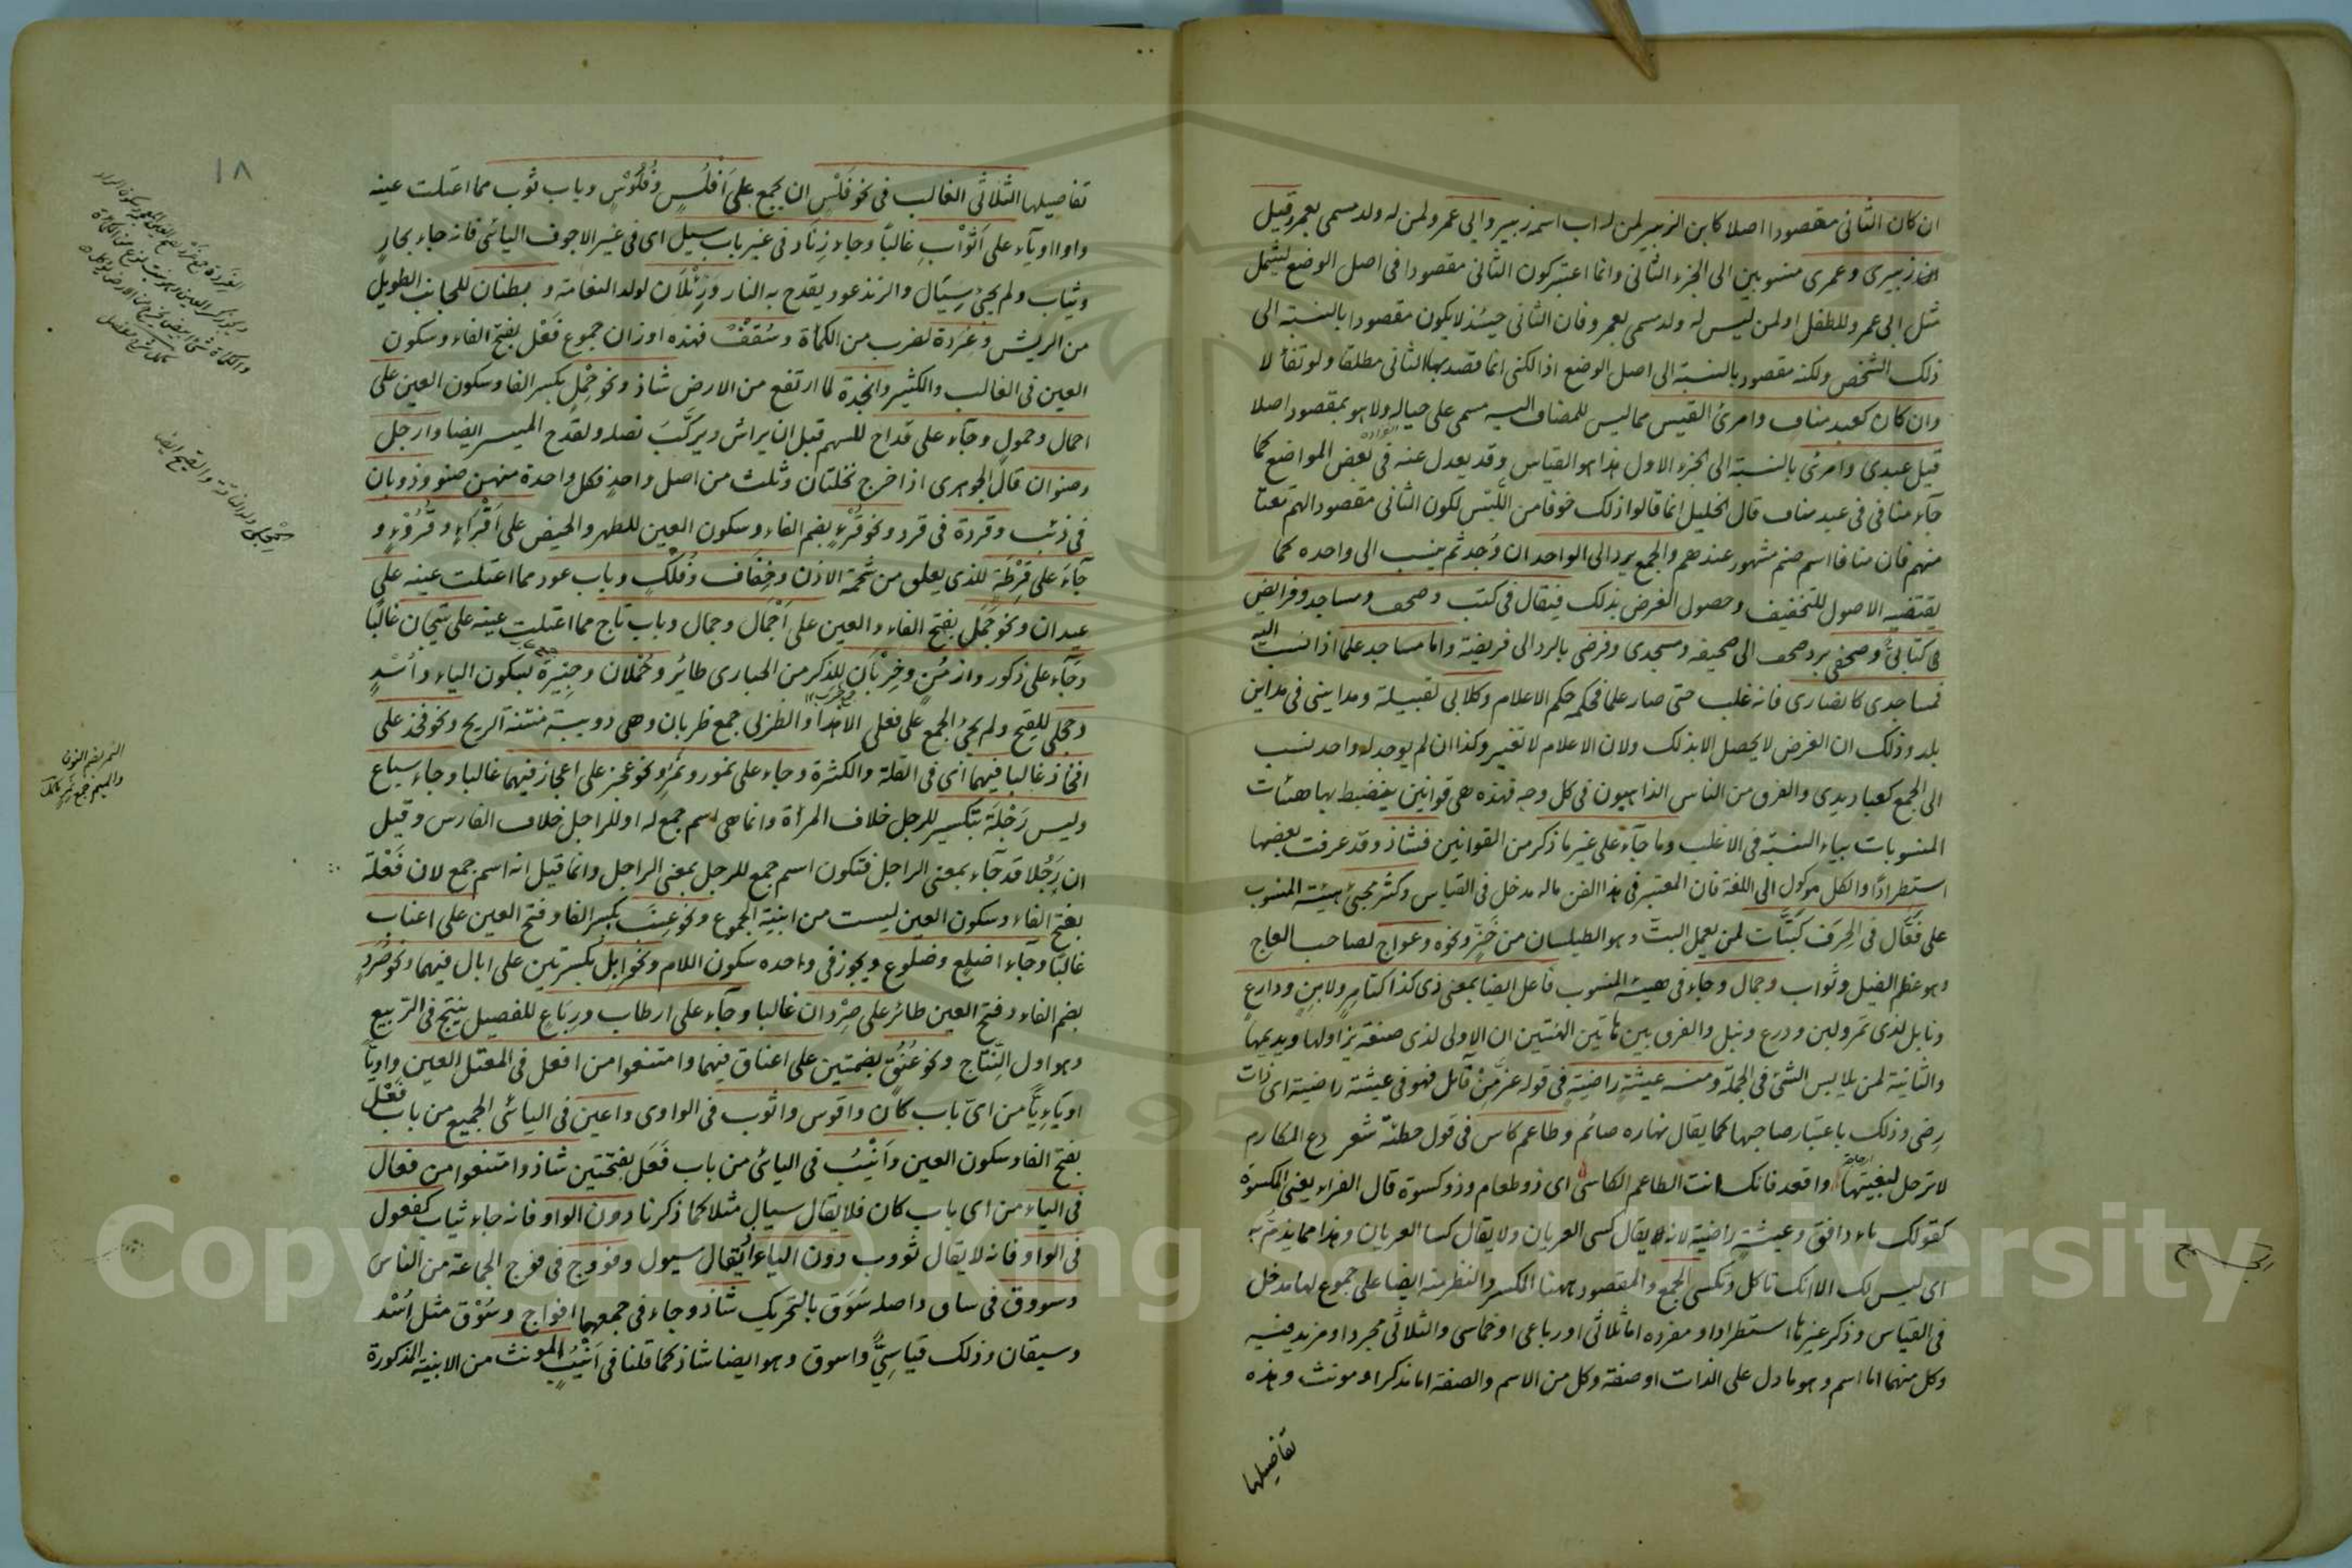 ان كان الثانى مقصودا اصلا كابن الزبير لمن له اب اسمه زبير وابى عمرو لمن له ولد مسمى بعمرو قيل
زبيرى وعمرى منسوبين الى الجزء الثانى وانما اعتبر كون الثانى مقصودا فى اصل الوضع ليشمل
مثل ابى عمرو للطفل او لمن ليس له ولد مسمى بعمرو فان الثانى حينئذ لا يكون مقصودا بالنسبة الى
ذلك الشخص ولكنه مقصود بالنسبة الى اصل الوضع اذ الكنى انما قصد بها الثانى مطلقا ولو تفألا
وان كان كعبد مناف وامرئ القيس مما ليس للمضاف اليه مسمى على حياله ولا هو بمقصود اصلا
قيل عبدى وامرئى بالنسبة الى الجزء الاول هذا هو القياس وقد يعدل عنه فى بعض المواضع كما
جاء منافى فى عبد مناف قال الخليل انما قالوا ذلك خوفا من اللبس لكون الثانى مقصودا لهم
منهم فان منافا اسم صنم مشهور عندهم والجمع يرد الى الواحد ان وجد ثم ينسب الى واحده كما
يقتضيه الاصول للتخفيف وحصول الغرض بذلك فيقال فى كتب وصحف ومساجد وفرايض
كتابىّ وصحفى برد صحف الى صحيفه ومسجدى وفرضى بالرد الى فريضة واما مساجد علما اذا نسب اليه
فمساجدى كانصارى فانه غلب حتى صار علما فحكمه حكم الاعلام وكلابى لقبيلة ومداينى فى مداين
بلد وذلك ان الغرض لا يحصل الا بذلك ولان الاعلام لا تغير وكذا ان لم يوجد له واحد نسب
الى الجمع كعباديدى والفرق من الناس الذاهبون فى كل وجه فهذه هى قوانين ينضبط بها هيئات
المنسوبات بياء النسبة فى الاغلب وما جاء على غير ما ذكر من القوانين فشاذ وقد عرفت بعضها
استطرادًا والكل موكول الى اللغة فان المعتبر فى هذا الفن ماله مدخل فى القياس وكثر مجئ هيئة المنسوب
على فَعَّال فى الحِرَف كبَتَّات لمن يعمل البتّ وهو الطيلسان من خَزّ ونحوه وعواج لصاحب العاج
وهو عظم الفيل وثواب وجمال وجاء فى هيئة المنسوب فاعل ايضا بمعنى ذى كذا كتامرٍ ولابنٍ ودارعٍ
ونابل لذى تمر ولبن ودرع ونبل والفرق بين هاتين الهيئتين ان الاولى لذى صنعة يزاولها ويديمها
والثانية لمن يلابس الشئ فى الجملة ومنه عيشةٍ راضيةٍ فى قوله عزّ من قائل فهو فى عيشة راضية اى ذات
رضى وذلك باعتبار صاحبها كما يقال نهاره صائم وطاعم كاس فى قول حطيئة شعر دع المكارم
لا ترحل لبغيتها واقعد فانك انت الطاعم الكاسى اى ذو طعام وذو كسوة قال الفراء يعنى المكسوة
كقولك ماء دافق وعيشةٍ راضية لانه لا يقال كسى العريان ولا يقال كسا العريان وهذا مما يذم به
اى ليس لك الا انك تاكل وتكسى الجمع والمقصود ههنا الكسر والنظر منه ايضا على جموع لها مدخل
فى القياس وذكر غيرها استطرادا ومفرده اما ثلاثى او رباعى او خماسى والثلاثى مجرد او مزيد فيه
وكل منهما اما اسم وهو ما دل على الذات او صفة وكل من الاسم والصفة اما مذكر او مونث وهذه
تفاصيلها
١٨
تفاصيلها الثلاثى الغالب فى نحو فَلْس ان يجمع على اَفْلُسٍ وفُلُوْسٍ وباب ثوب مما اعتلت عينه
واوا او ياء على اَثْوابٍ غالبًا وجاء زِنَاد فى غير باب سيل اى فى غير الاجوف اليائى فانه جاء بحار
وثياب ولم يجئ سِيَال والزند عود يقدح به النار ورِئْلَان لولد النعامة و بطنان للجانب الطويل
من الريش وغِرَدة لضرب من الكمأة وسُقُف فهذه اوزان جموع فَعْل بفتح الفاء وسكون
العين فى الغالب والكثير وانجدة لما ارتفع من الارض شاذ ونحو حِمْلٍ بكسر الفا وسكون العين على
احمال وحمول وجاء على قداح للسهم قبل ان يراش ويركّب نصله ولقدح الميسر ايضا وارجل
وصنوان قال الجوهرى اذا خرج نخلتان وثلث من اصل واحدٍ فكل واحدة منهن صنو وذوبان
فى ذئب وقردة فى قرد ونحو قُرْءٍ بضم الفاء وسكون العين للطهر والحيض على اَقْرَاءٍ وقُرُوْءٍ و
جاءَ على قِرَطَةٍ للذى يعلق من شحمة الاذن وخِفَاف وفُلْكٍ وباب عود مما اعتلت عينه على
عيدان ونحو جَمَل بفتح الفاء والعين على اَجْمَال وجمال وباب تاج مما اعتلت عينه على تيجان غالبًا
وجَاء على ذكور وازمُنٍ وخِرْبَان للذكر من الحبارى طائر وحُمْلان وجِيْرَة بسكون الياء واُسْدٍ
وحجلى للقبج ولم يجئ الجمع على فعلى الا هذا والظربى جمع ظربان وهى دويبة منتنة الريح ونحو فخذ على
افخاذ غالبا فيهما اى فى القلة والكثرة وجاء على نمور ونُمُر ونحو عجز على اعجاز فيهما غالبا وجاء سباع
وليس رَجْلَة بتكسير للرجل خلاف المرأة وانما هى اسم جمع له او للراجل خلاف الفارس وقيل
ان رَجُلا قد جاء بمعنى الراجل فتكون اسم جمع للرجل بمعنى الراجل وانما قيل انه اسم جمع لان فَعْلَة
بفتح الفاء وسكون العين ليست من ابنية الجموع ونحو عِنَب بكسر الفا وفتح العين على اعناب
غالبًا وجاء اضلع وضلوع ويجوز فى واحده سكون اللام ونحو اِبِل بكسرتين على ابال فيهما ونحو صُرَدٍ
بضم الفاء وفتح العين طائر على صِرْدان غالبا وجاء على ارطاب ورِبَاعٍ للفصيل ينتج فى الربيع
وهو اول النِّتاج ونحو عُنُقٍ بضمتين على اعناق فيهما وامتنعوا من افعل فى المعتل العين واويّا
او يائيًّا من اىّ باب كان واقوس واثوب فى الواوى واعين فى اليائى الجميع من باب فَعْل
بفتح الفا وسكون العين واَنْيُبُ فى اليائى من باب فَعَل بفتحتين شاذ وامتنعوا من فعال
فى الياء من اى باب كان فلا يقال سيال مثلا كما ذكرنا دون الواو فانه جاء ثياب كفعول
فى الواو فانه لا يقال ثووب دون الياء يقال سيول وفووج فى فوج الجماعة من الناس
وسووق فى ساق واصله سَوَق بالتحريك شاذ وجاء فى جمعهما افواج وسُوْق مثل اُسْد
وسيقان وذلك قياسِىٌّ واسوق وهو ايضا شاذ كما قلنا فى اَنْيُبٍ المونث من الابنية المذكورة
النمر بضم النون